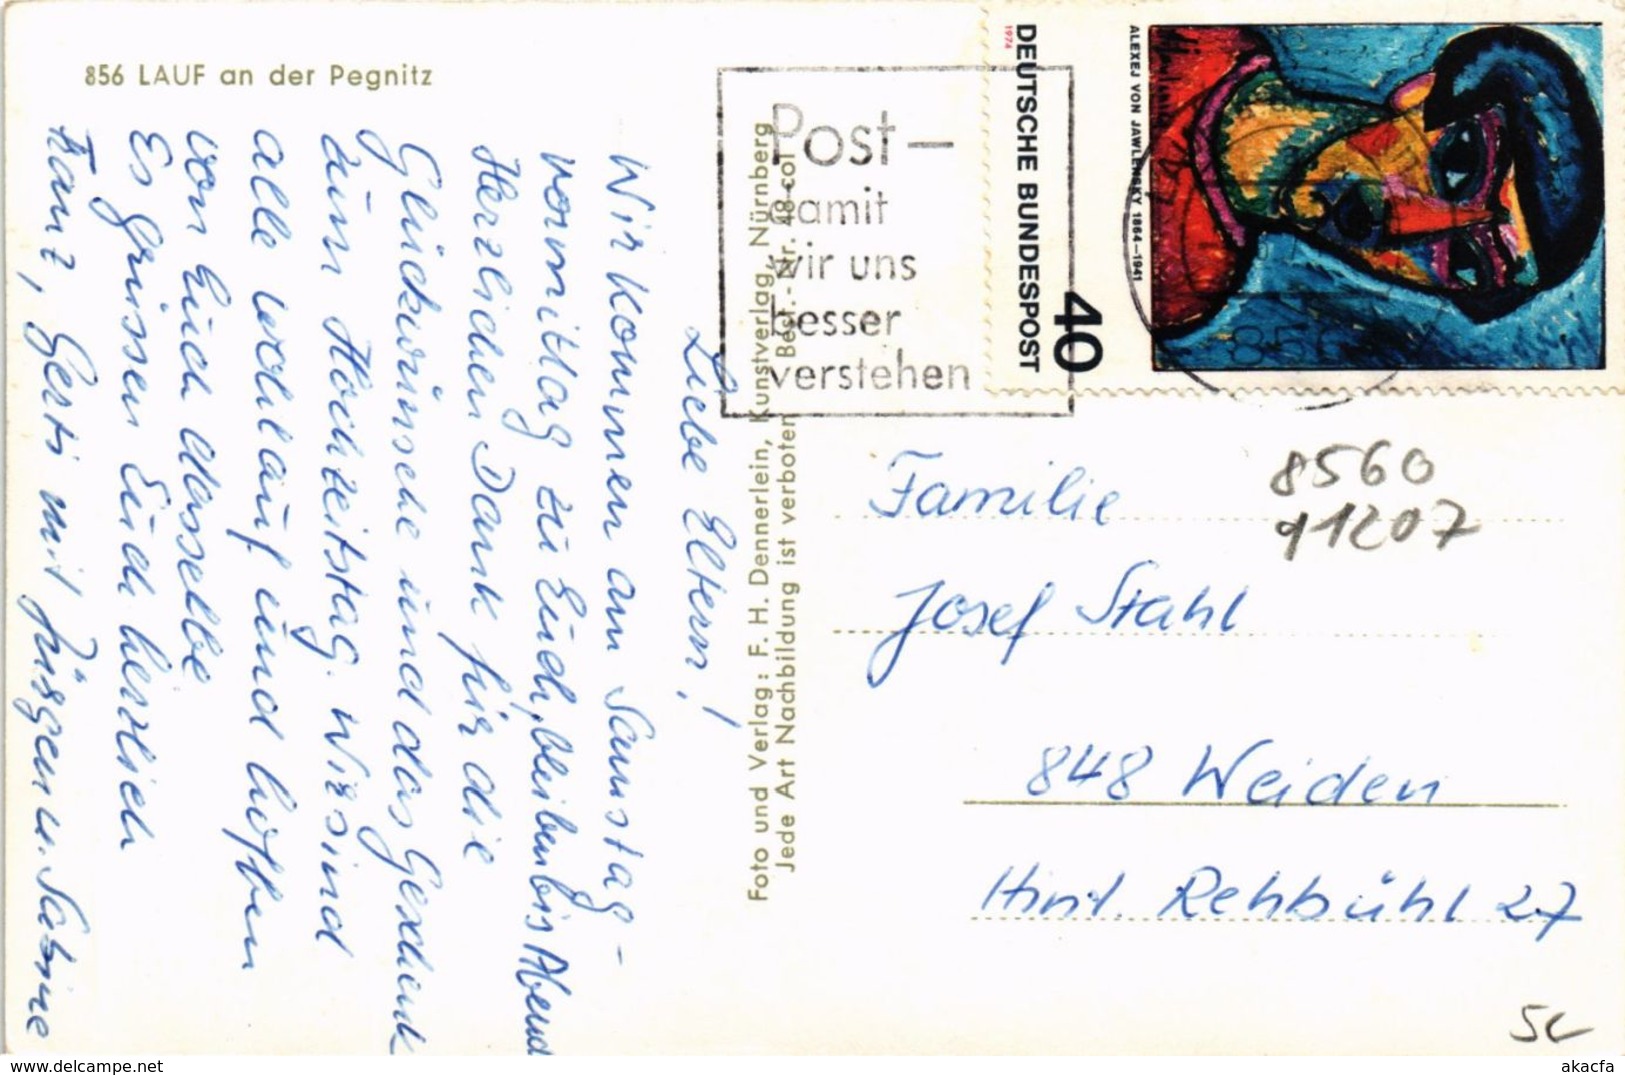 856 LAUF an der Pegnitz
Liebe Eltern!
Wir kommen am Samstag-
vormittag zu Euch, bleiben bis Abend
Herzlichen Dank für die
Glückwünsche und das Geschenk
zum Hochzeitstag. Wir sind
alle wohlauf und hoffen
von Euch dasselbe
Es grüssen Euch herzlich
Franz, Gerti mit Jürgen u. Sabine
Foto und Verlag: F. H. Dennerlein, Kunstverlag, Nürnberg
Jede Art Nachbildung ist verboten Best.-Nr. 48-col
Post-
damit
wir uns
besser
verstehen
DEUTSCHE BUNDESPOST
40
1974
ALEXEJ VON JAWLENSKY 1864-1941
8560
91207
Familie
Josef Stahl
848 Weiden
Hint. Rehbühl 27
akacfa